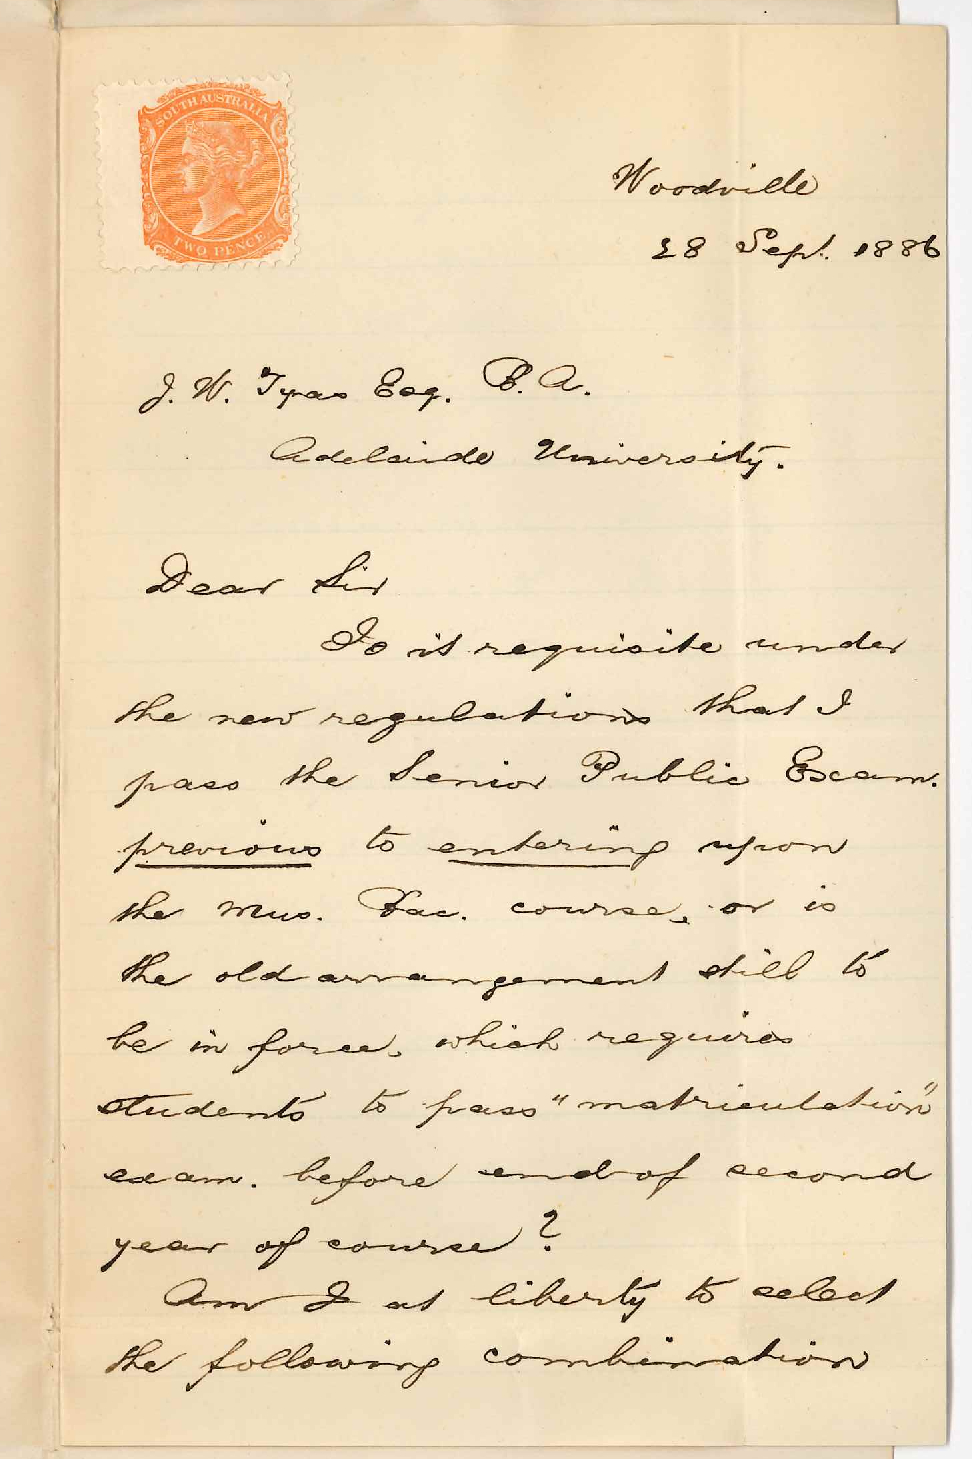 SOUTH AUSTRALIA
TWO PENCE
Woodville
28 Sept. 1886
J. W. Tyas Esq. B. A.
Adelaide University.
Dear Sir
Is it requisite under
the new regulations that I
pass the Senior Public Exam.
previous to entering upon
the Mus. Bac. course, or is
the old arrangement still to
be in force, which requires
students to pass "matriculation"
exam. before end of second
year of course?
Am I at liberty to select
the following combination